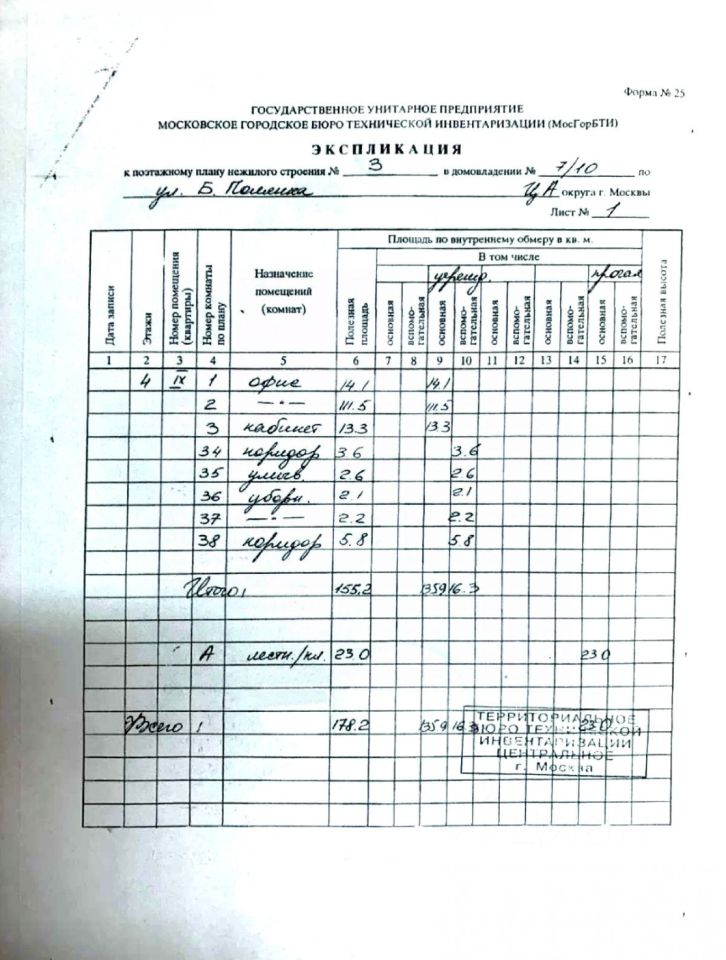 Форма № 25
ГОСУДАРСТВЕННОЕ УНИТАРНОЕ ПРЕДПРИЯТИЕ
МОСКОВСКОЕ ГОРОДСКОЕ БЮРО ТЕХНИЧЕСКОЙ ИНВЕНТАРИЗАЦИИ (МосГорБТИ)
ЭКСПЛИКАЦИЯ
к поэтажному плану нежилого строения № 3 в домовладении № 7/10 по
ул. Б. Полянка ЦА округа г. Москвы
Лист № 1
Дата записи
Этажи
Номер помещения (квартиры)
Номер комнаты по плану
Назначение помещений (комнат)
Полезная площадь
Площадь по внутреннему обмеру в кв. м.
В том числе
учрежд.
основная вспомогательная основная вспомогательная основная вспомогательная основная вспомогательная основная вспомогательная
Полезная высота
1 2 3 4 5 6 7 8 9 10 11 12 13 14 15 16 17
4 IX 1 офис 14.1 14.1
2 —"— 111.5 111.5
3 кабинет 13.3 13.3
34 коридор 3.6 3.6
35 умыв. 2.6 2.6
36 уборн. 2.1 2.1
37 —"— 2.2 2.2
38 коридор 5.8 5.8
Итого: 155.2 135.9 16.3
А лестн./кл. 23.0 23.0
Всего : 178.2 135.9 16.3 23.0
ТЕРРИТОРИАЛЬНОЕ
БЮРО ТЕХНИЧЕСКОЙ
ИНВЕНТАРИЗАЦИИ
ЦЕНТРАЛЬНОЕ
г. Москва